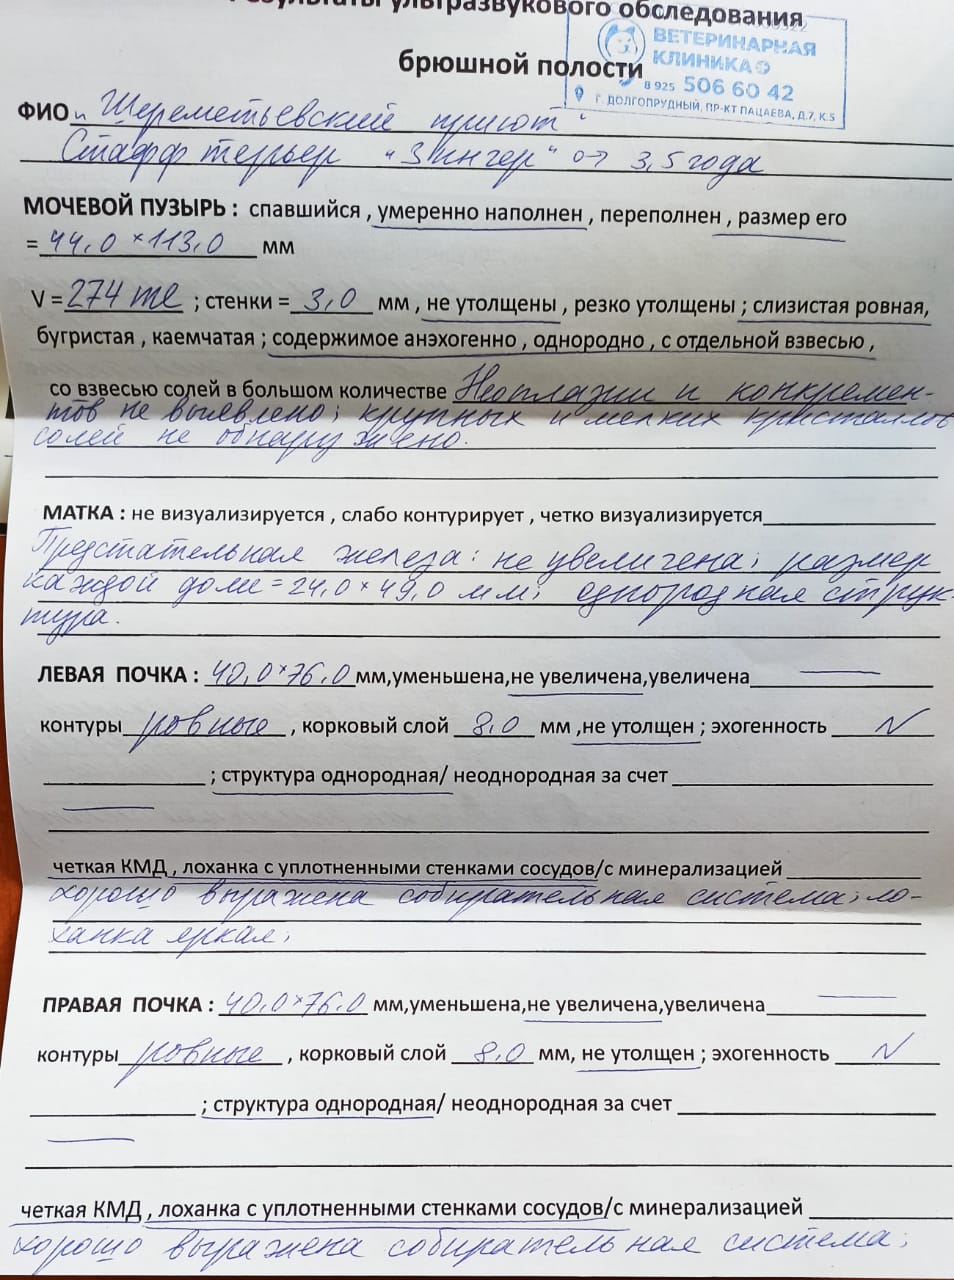 Результаты ультразвукового обследования
брюшной полости
ВЕТЕРИНАРНАЯ
КЛИНИКА
8 925 506 60 42
Г. ДОЛГОПРУДНЫЙ, ПР-КТ ПАЦАЕВА, Д.7, К.5
ФИО „Шереметьевский приют"
Стафф терьер "Зингер" ♂ 3,5 года
МОЧЕВОЙ ПУЗЫРЬ : спавшийся , умеренно наполнен , переполнен , размер его
= 44,0 × 113,0 мм
V = 274 ml ; стенки = 3,0 мм , не утолщены , резко утолщены ; слизистая ровная,
бугристая , каемчатая ; содержимое анэхогенно , однородно , с отдельной взвесью ,
со взвесью солей в большом количестве Неоплазии и конкремен-
тов не выявлено; крупных и мелких кристаллов
солей не обнаружено.
МАТКА : не визуализируется , слабо контурирует , четко визуализируется
Предстательная железа: не увеличена; размер
каждой доли = 24,0 × 49,0 мм; однородная струк-
тура.
ЛЕВАЯ ПОЧКА : 40,0 × 76,0 мм,уменьшена,не увеличена,увеличена
контуры ровные , корковый слой 8,0 мм ,не утолщен ; эхогенность N
; структура однородная/ неоднородная за счет
четкая КМД , лоханка с уплотненными стенками сосудов/с минерализацией
хорошо выражена собирательная система; ло-
ханка яркая;
ПРАВАЯ ПОЧКА : 40,0 × 76,0 мм,уменьшена,не увеличена,увеличена
контуры ровные , корковый слой 8,0 мм, не утолщен ; эхогенность N
; структура однородная/ неоднородная за счет
четкая КМД , лоханка с уплотненными стенками сосудов/с минерализацией
хорошо выражена собирательная система;